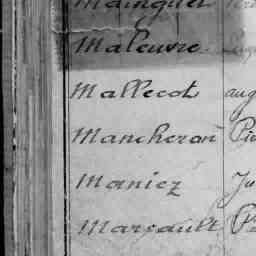 Mainguet
Maleuvre
Mallecot aug
Mancheron Pie
Maniez Ju
Marsault P